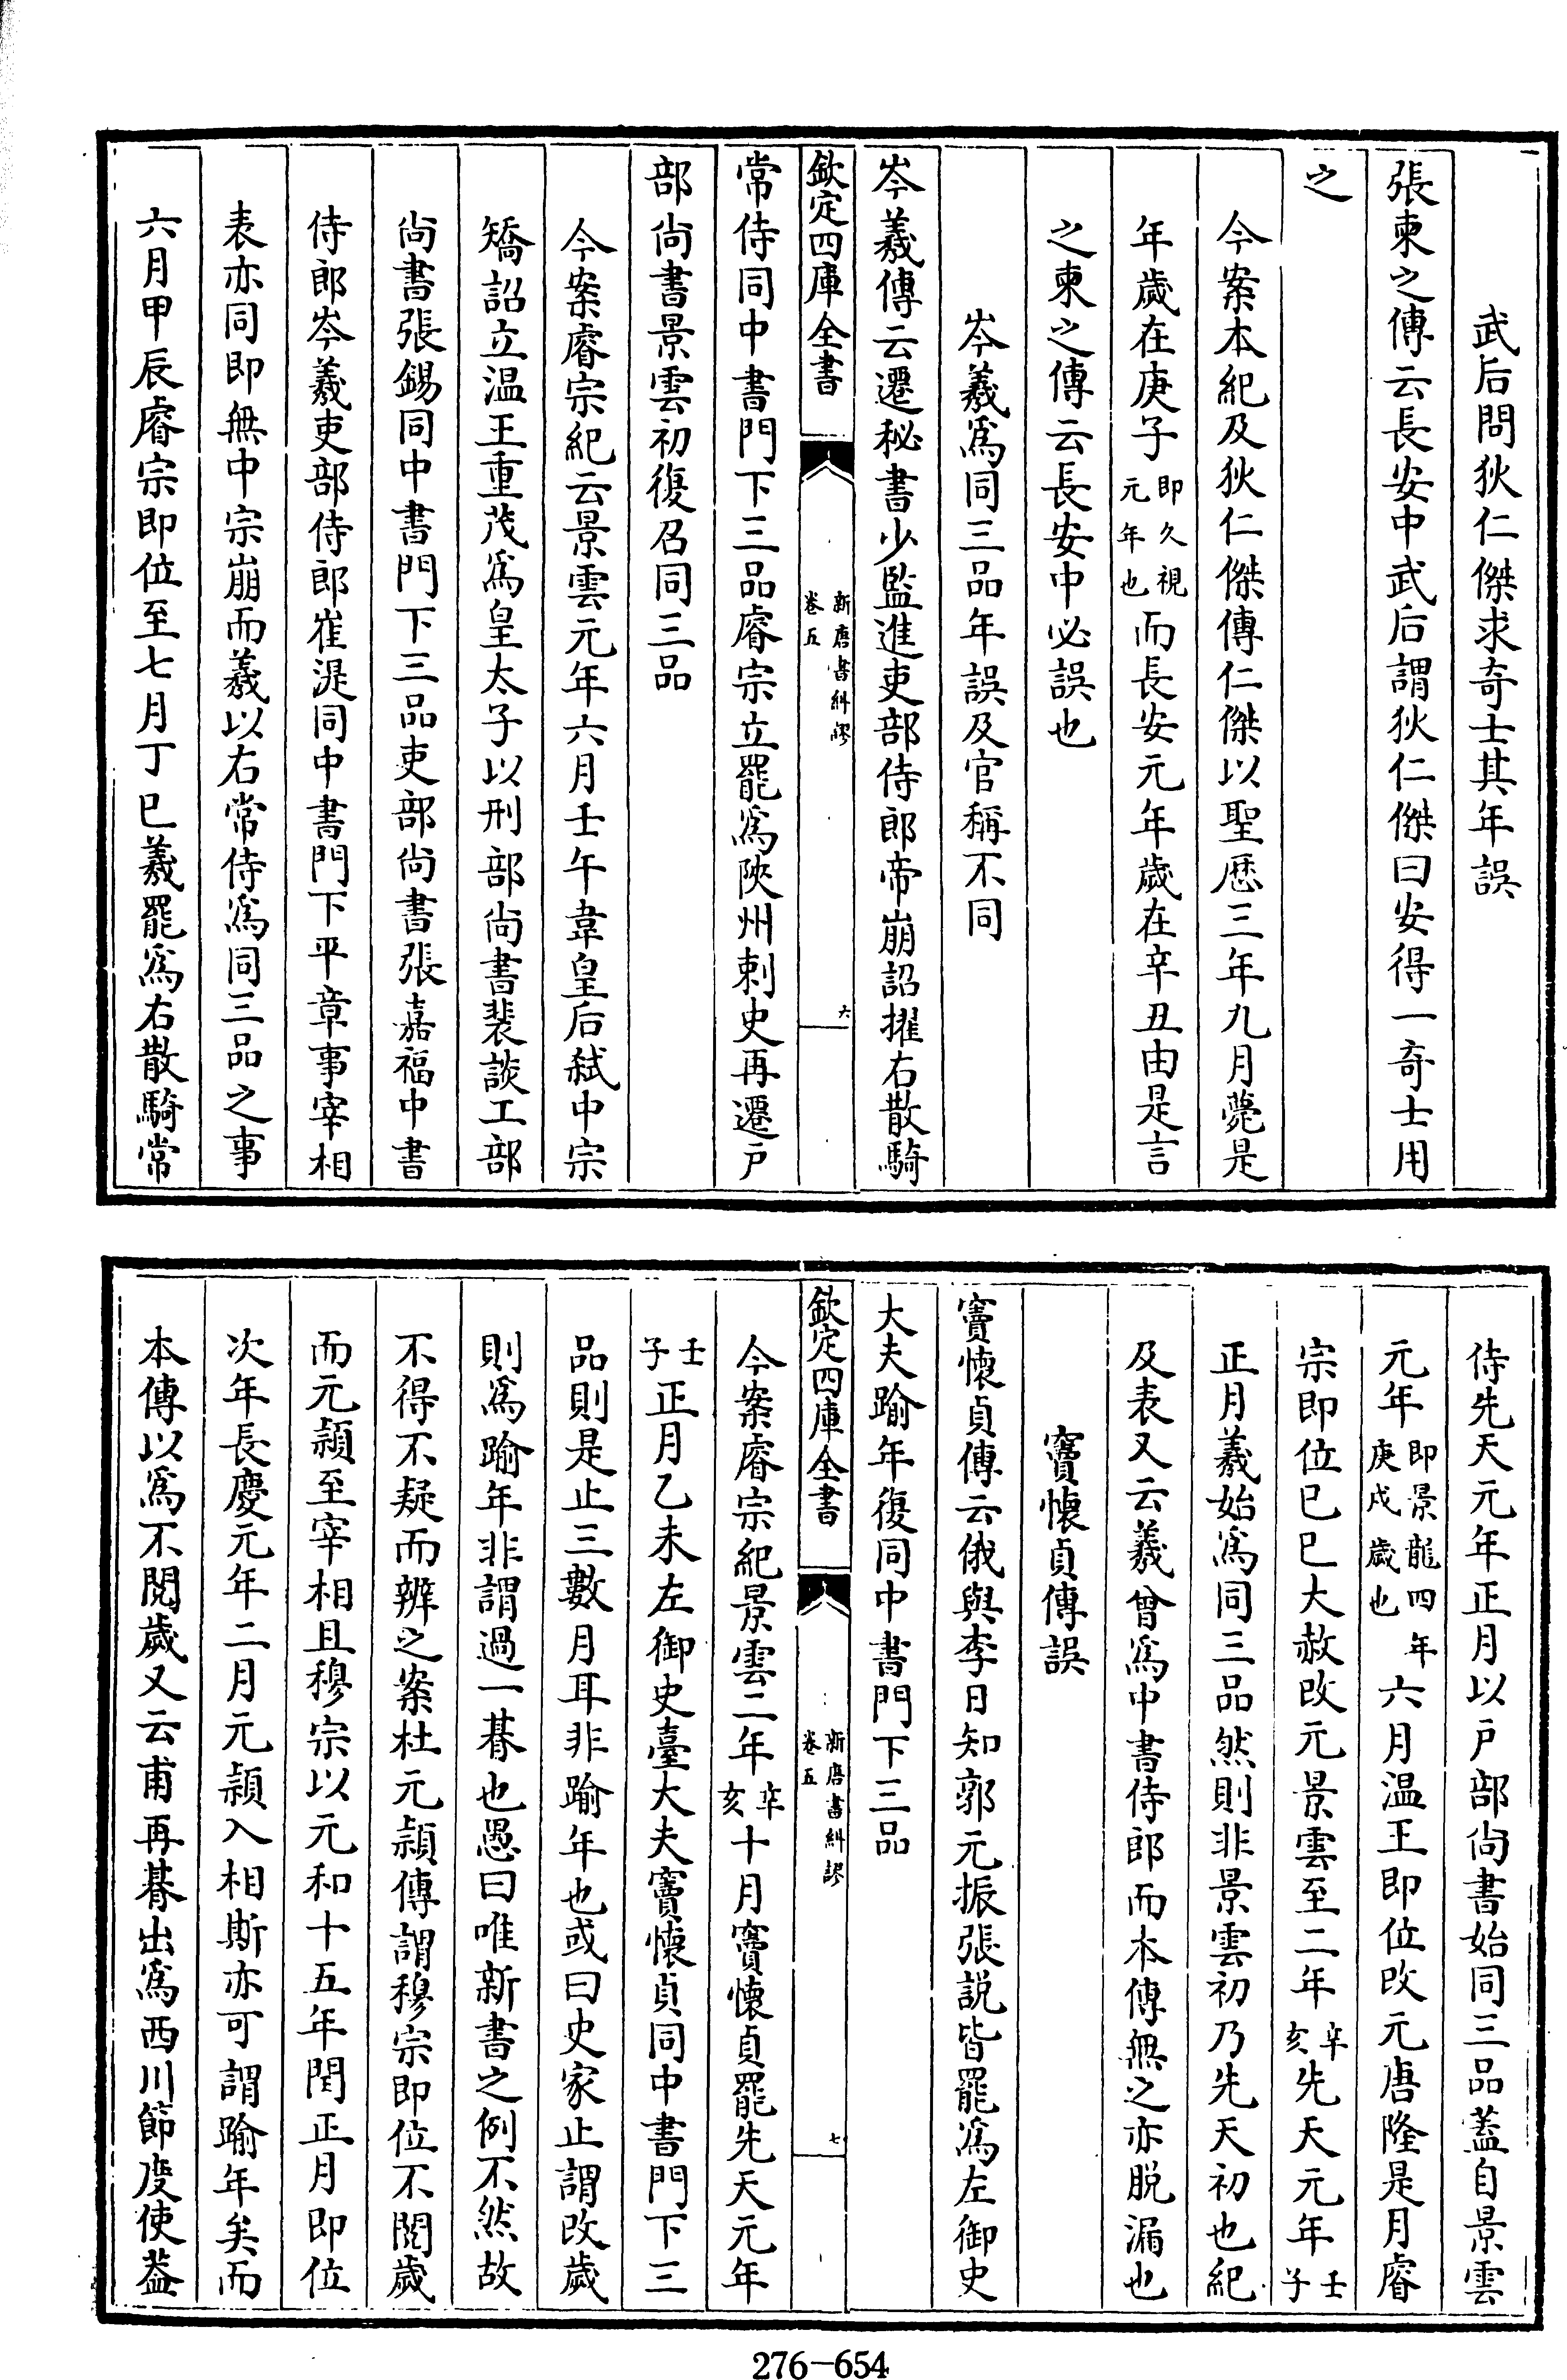 武后問狄仁傑求奇士其年誤
張柬之傳云長安中武后謂狄仁傑曰安得一奇士用
之
今案本紀及狄仁傑傳仁傑以聖厯三年九月薨是
年歲在庚子即久視元年也而長安元年歲在辛丑由是言
之柬之傳云長安中必誤也
岑羲為同三品年誤及官稱不同
岑羲傳云遷秘書少監進吏部侍郎帝崩詔擢右散騎
欽定四庫全書
新唐書糾謬
卷五
六
常侍同中書門下三品睿宗立罷為陜州刺史再遷戶
部尚書景雲初復召同三品
今案睿宗紀云景雲元年六月壬午韋皇后弑中宗
矯詔立温王重茂為皇太子以刑部尚書裴談工部
尚書張錫同中書門下三品吏部尚書張嘉福中書
侍郎岑羲吏部侍郎崔湜同中書門下平章事宰相
表亦同即無中宗崩而羲以右常侍為同三品之事
六月甲辰睿宗即位至七月丁巳羲罷為右散騎常
侍先天元年正月以戶部尚書始同三品蓋自景雲
元年即景龍四年庚戌歲也六月温王即位改元唐隆是月睿
宗即位已巳大赦改元景雲至二年辛亥先天元年壬子
正月羲始為同三品然則非景雲初乃先天初也紀
及表又云羲曾為中書侍郎而本傳無之亦脱漏也
竇懷貞傳誤
竇懷貞傳云俄與李日知郭元振張説皆罷為左御史
大夫踰年復同中書門下三品
欽定四庫全書
新唐書糾謬
卷五
七
今案睿宗紀景雲二年辛亥十月竇懷貞罷先天元年
壬子正月乙未左御史臺大夫竇懷貞同中書門下三
品則是止三數月耳非踰年也或曰史家止謂改歲
則為踰年非謂過一朞也愚曰唯新書之例不然故
不得不疑而辨之案杜元頴傳謂穆宗即位不閲歲
而元頴至宰相且穆宗以元和十五年閏正月即位
次年長慶元年二月元頴入相斯亦可謂踰年矣而
本傳以為不閲歲又云甫再朞出為西川節度使葢
276-654